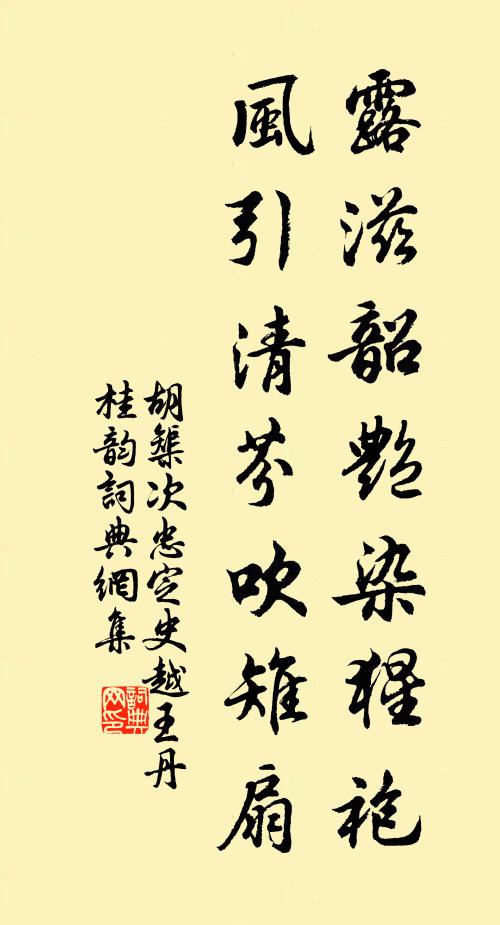 露滋韶艷染猩袍
風引清芬吹雉扇
胡榘次忠定史越王丹
桂韵詞典網集
詞典網印